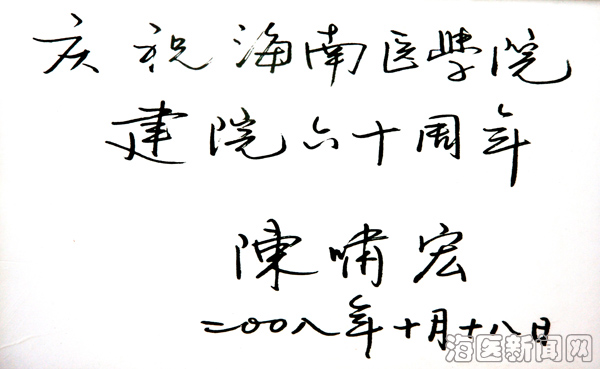 庆祝海南医学院
建院六十周年
陳啸宏
二〇〇八年十月十八日
海医新闻网